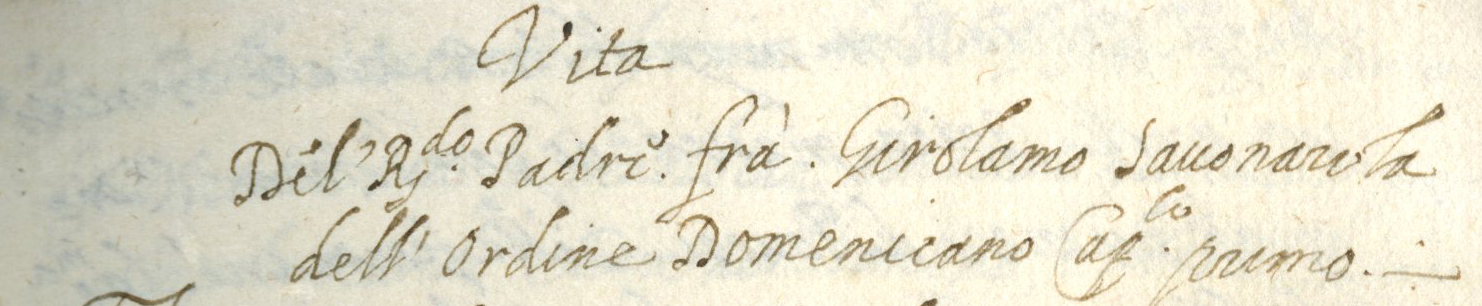 Vita
Del' R.do Padre. frà. Girolamo Sauonarola
dell' Ordine Domenicano Cap.lo primo.